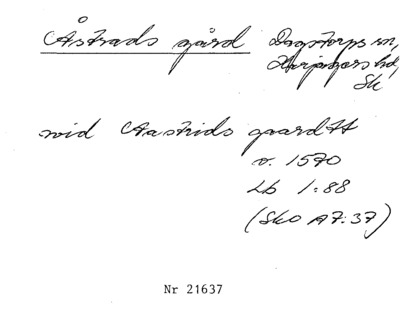 Åstrads gård Dagstorps sn,
Harjagers hd,
Sk
wid Aastrids gaardtt
o. 1570
Lb 1:88
(SkO A7:37)
Nr 21637